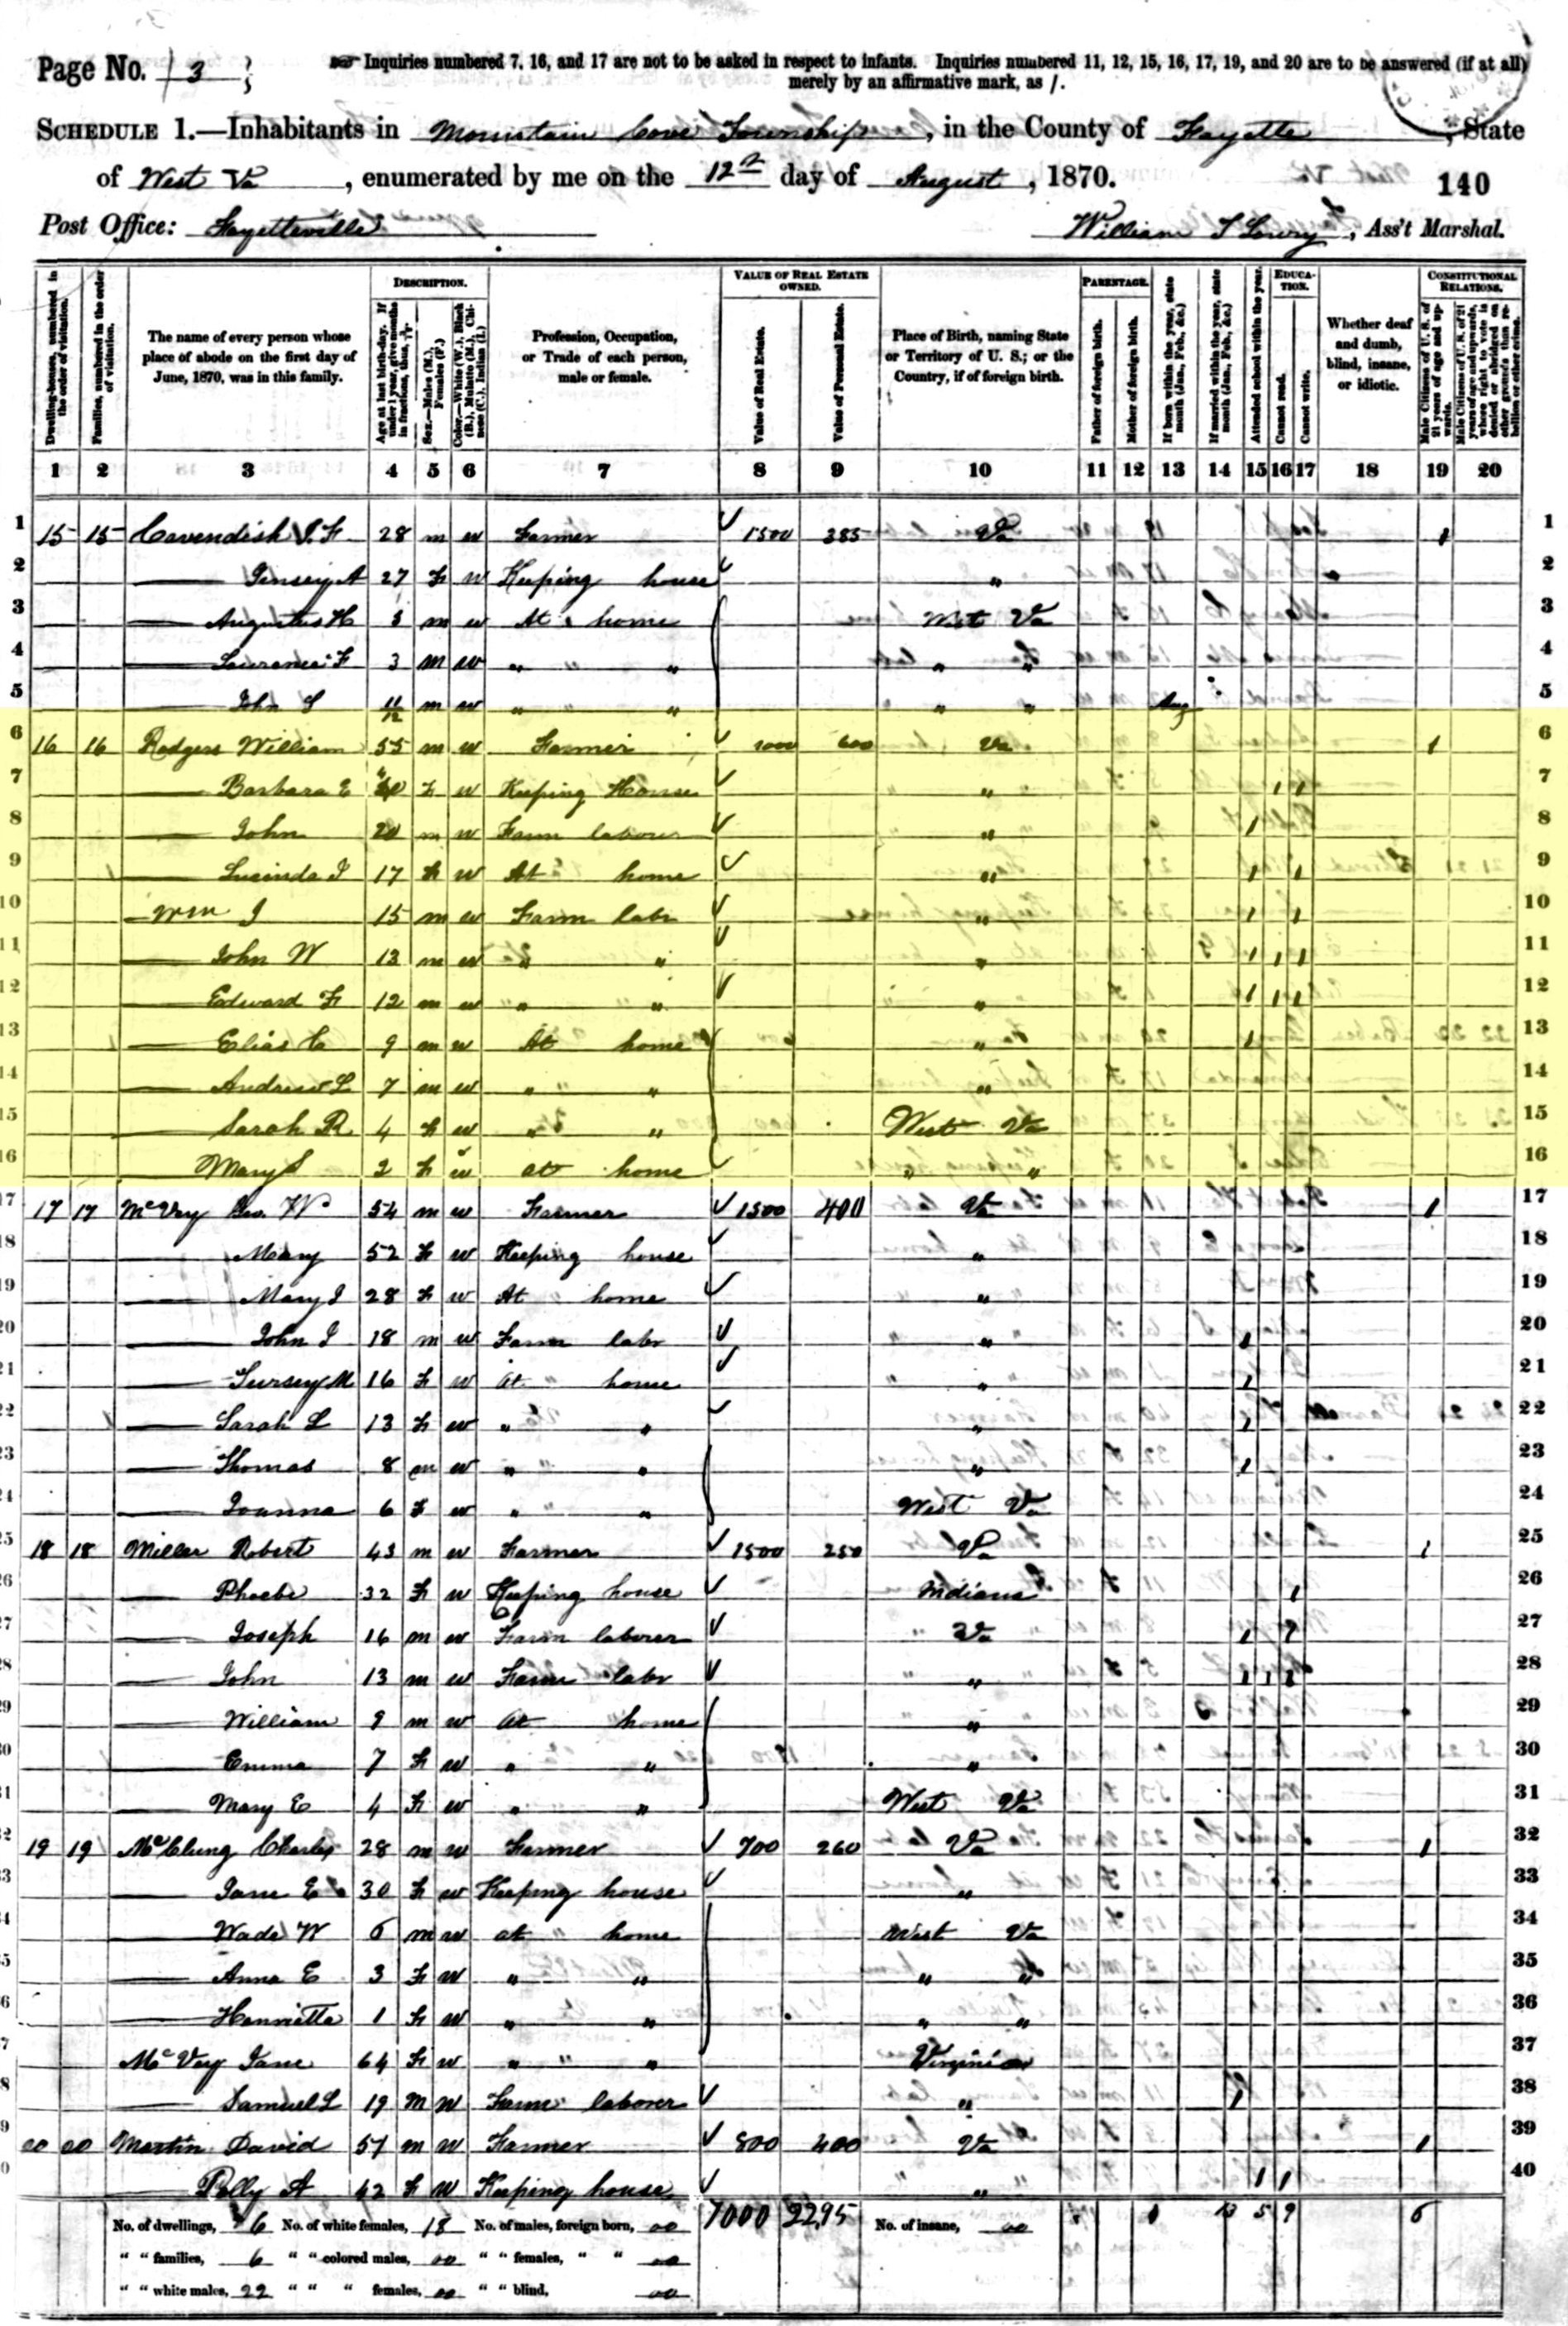 Page No. 3
☞ Inquiries numbered 7, 16, and 17 are not to be asked in respect to infants. Inquiries numbered 11, 12, 15, 16, 17, 19, and 20 are to be answered (if at all)
merely by an affirmative mark, as /.
SCHEDULE 1.—Inhabitants in Mountain Cove Township, in the County of Fayette, State
of West Va, enumerated by me on the 12th day of August, 1870. 140
Post Office: Fayetteville William T Lowry, Ass't Marshal.
DESCRIPTION. VALUE OF REAL ESTATE OWNED. PARENTAGE. EDUCATION. CONSTITUTIONAL RELATIONS.
Dwelling-houses, numbered in the order of visitation.
Families, numbered in the order of visitation.
The name of every person whose place of abode on the first day of June, 1870, was in this family.
Age at last birth-day. If under 1 year, give months in fractions, thus, 3/12
Sex.—Males (M.), Females (F.)
Color.—White (W.), Black (B.), Mulatto (M.), Chinese (C.), Indian (I.)
Profession, Occupation, or Trade of each person, male or female.
Value of Real Estate.
Value of Personal Estate.
Place of Birth, naming State or Territory of U. S.; or the Country, if of foreign birth.
Father of foreign birth.
Mother of foreign birth.
If born within the year, state month (Jan., Feb., &c.)
If married within the year, state month (Jan., Feb., &c.)
Attended school within the year.
Cannot read.
Cannot write.
Whether deaf and dumb, blind, insane, or idiotic.
Male Citizens of U. S. of 21 years of age and upwards.
Male Citizens of U. S. of 21 years of age and upwards, where right to vote is denied or abridged on other grounds than rebellion or other crime.
1 2 3 4 5 6 7 8 9 10 11 12 13 14 15 16 17 18 19 20
1 15 15 Cavendish F. 28 m w Farmer 1500 385 Va / 1
2 A 27 F w Keeping house " 2
3 Augustus H 3 m w At home West Va 3
4 F 3 m w " " " " 4
5 John S 11/12 m w " " " " Aug 5
6 16 16 Rodgers William 55 m w Farmer 1000 600 Va / 6
7 Barbara E 40 F w Keeping House " / / 7
8 John 20 m w Farm laborer " / 8
9 Lucinda J 17 F w At home " / / 9
10 Wm J 15 m w Farm labr " / / 10
11 John W 13 m w " " " / / / 11
12 Edward F 12 m w " " " / / / 12
13 Elias C 9 m w At home " / 13
14 Andrew L 7 m w " " " " 14
15 Sarah R 4 F w " " West Va 15
16 Mary S 2 F w at home " " 16
17 17 17 McVey Geo. W 54 m w Farmer 1500 400 Va / 17
18 Mary 52 F w Keeping house " 18
19 Mary J 28 F w At home " 19
20 John J 18 m w Farm labr " / 20
21 M 16 F w At home " / 21
22 Sarah L 13 F w " " " / 22
23 Thomas 8 m w " " " " / 23
24 Joanna 6 F w " " " West Va 24
25 18 18 Miller Robert 43 m w Farmer 1500 250 Va / 25
26 Phoebe 32 F w Keeping house Indiana / 26
27 Joseph 16 m w Farm laborer Va / / 27
28 John 13 m w Farm labr " / / / 28
29 William 9 m w At home " 29
30 Emma 7 F w " " " 30
31 Mary E 4 F w " " West Va 31
32 19 19 McClung Charles 28 m w Farmer 700 260 Va / 32
33 Jane E 30 F w Keeping house " 33
34 Wade W 6 m w at home West Va 34
35 Anna E 3 F w " " " " 35
36 Henrietta 1 F w " " " " 36
37 McVey Jane 64 F w " " " Virginia 37
38 Samuel L 19 M W Farm laborer " / 38
39 20 20 Martin David 57 m w Farmer 800 400 Va / 39
40 Polly A 42 F W Keeping house " / / 40
No. of dwellings, 6 No. of white females, 18 No. of males, foreign born, 00 7000 2295 No. of insane, 00 1 13 5 9 6
" " families, 6 " " colored males, 00 " " females, " " 00
" " white males, 22 " " " females, 00 " " blind, 00